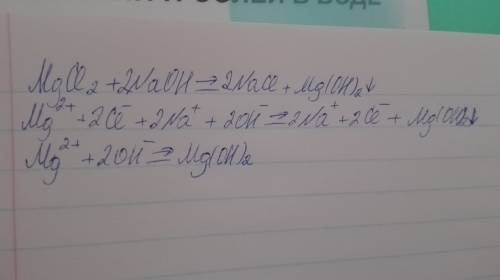 РОЛЕЙ В ВОДЕ
MgCl₂ + 2NaOH ⇌ 2NaCl + Mg(OH)₂↓
Mg²⁺ + 2Cl⁻ + 2Na⁺ + 2OH⁻ ⇌ 2Na⁺ + 2Cl⁻ + Mg(OH)₂↓
Mg²⁺ + 2OH⁻ ⇌ Mg(OH)₂